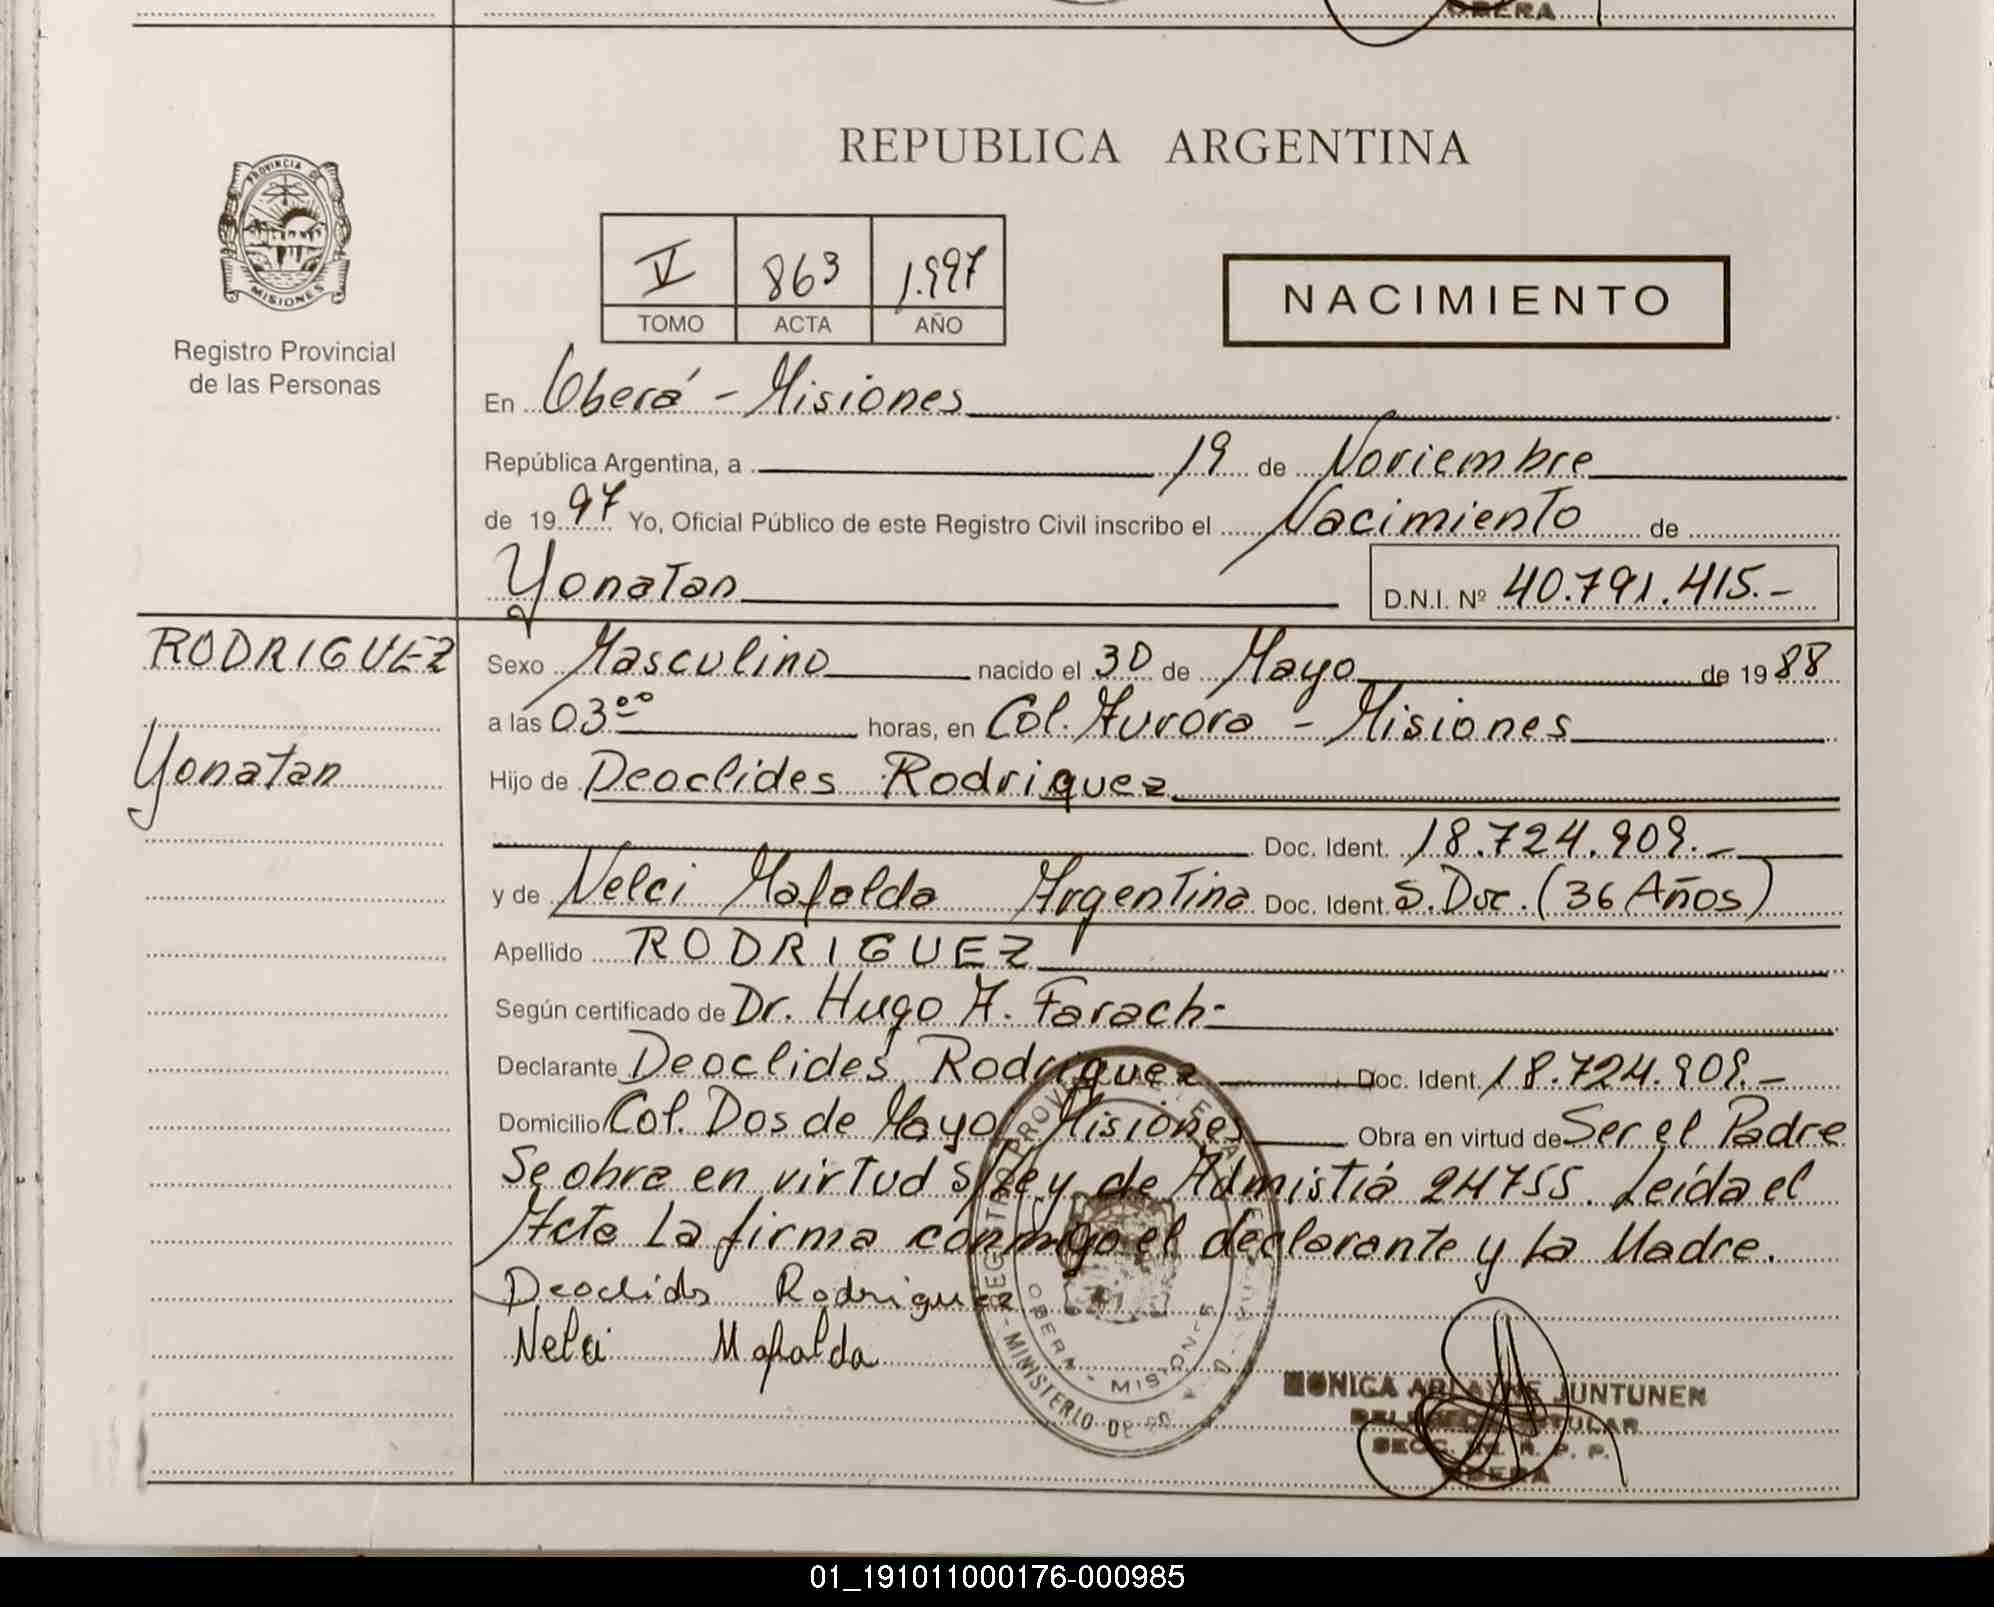 OBERA
REPUBLICA ARGENTINA
PROVINCIA DE
MISIONES
Registro Provincial
de las Personas
V 863 1.997
TOMO ACTA AÑO
NACIMIENTO
En Oberá - Misiones
República Argentina, a 19 de Noviembre
de 1997 Yo, Oficial Público de este Registro Civil inscribo el Nacimiento de
Yonatan D.N.I. Nº 40.791.415.-
RODRIGUEZ
Yonatan
Sexo Masculino nacido el 30 de Mayo de 1988
a las 03°° horas, en Col. Aurora - Misiones
Hijo de Deoclides Rodriguez
Doc. Ident. 18.724.909.-
y de Nelci Mafalda Argentina Doc. Ident. S. Doc. (36 Años)
Apellido RODRIGUEZ
Según certificado de Dr. Hugo A. Farach-
Declarante Deoclides Rodriguez Doc. Ident. 18.724.909.-
Domicilio Col. Dos de Mayo Misiones Obra en virtud de Ser el Padre
Se obra en virtud s/ Ley de Admistiá 24755. Leída el
Acta La firma conmigo el declarante y La Madre.
Deoclids Rodriguez
Nelci Mafalda
REGISTRO PROV
OBERA - MISIONES
MINISTERIO DE
MONICA ARLAYNE JUNTUNEN
TITULAR
SECC. R. P. P.
OBERA
01_191011000176-000985